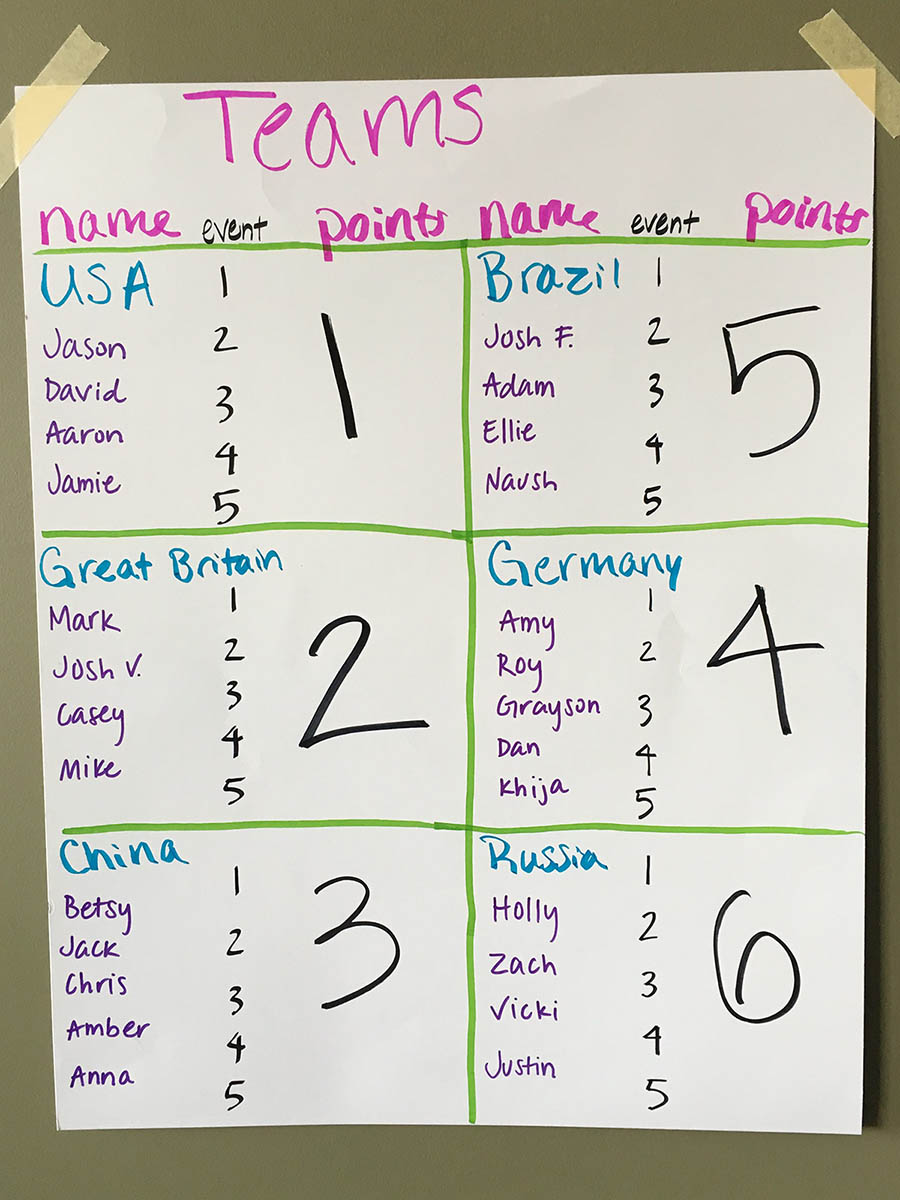 Teams
name event points name event points
USA 1
Jason 2
David 3
Aaron 4
Jamie 5
1
Brazil 1
Josh F. 2
Adam 3
Ellie 4
Naush 5
5
Great Britain
1
Mark
Josh V. 2
Casey 3
Mike 4
5
2
Germany
1
Amy
Roy 2
Grayson 3
Dan 4
Khija 5
4
China
1
Betsy
Jack 2
Chris 3
Amber 4
Anna 5
3
Russia 1
Holly 2
Zach 3
Vicki 4
Justin 5
6